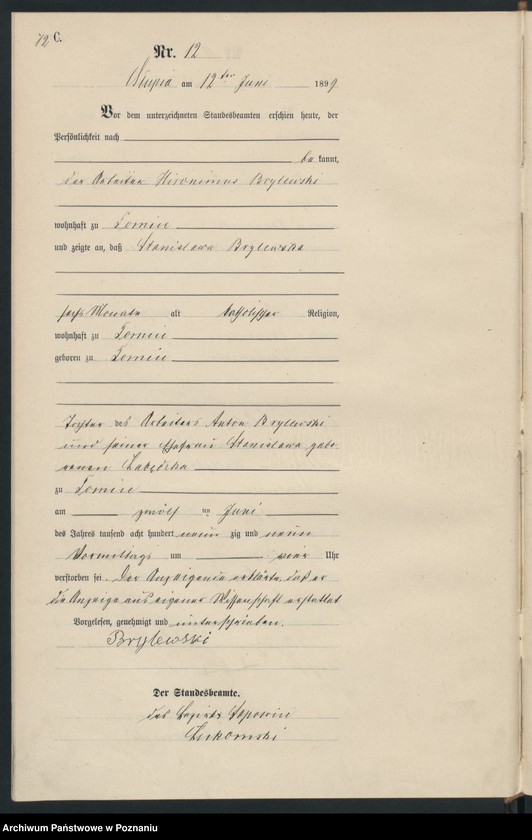 72 C.
Nr. 12
Słupia am 12ten Juni 1899
Vor dem unterzeichneten Standesbeamten erschien heute, der
Persönlichkeit nach
be kannt,
der Arbeiter Hieronimus Brylewski
wohnhaft zu Tomin
und zeigte an, daß Stanislawa Brylewska
sechs Monate alt katholischer Religion,
wohnhaft zu Tomin
geboren zu Tomin
Tochter des Arbeiters Anton Brylewski
und seiner Ehefrau Stanislawa gebo
renen
zu Tomin
am zwölf ten Juni
des Jahres tausend acht hundert neun zig und neun
Vormittags um vier Uhr
verstorben sei. Der Anzeigende erklärte, daß er
die Anzeige aus eigener Wissenschaft erstattet
Vorgelesen, genehmigt und unterschrieben.
Brylewski
Der Standesbeamte.
des Bezirks
Łukomski
Archiwum Państwowe w Poznaniu